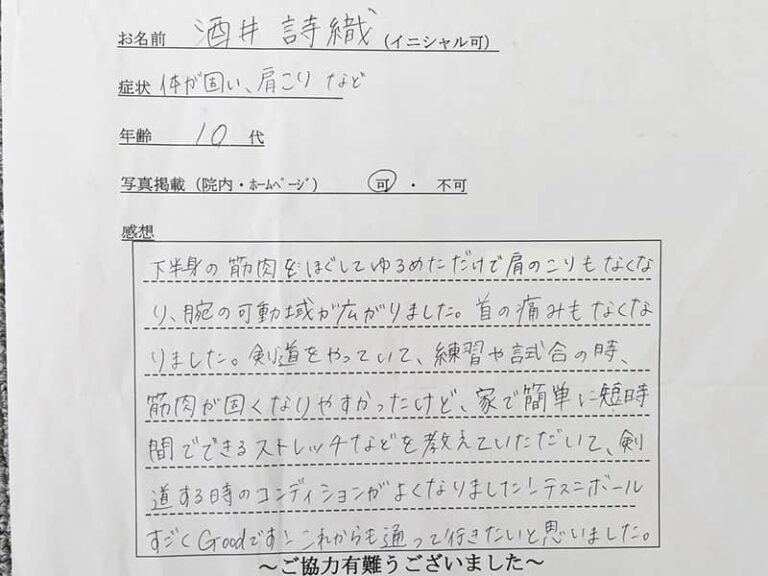 お名前 酒井 詩織 (イニシャル可)
症状 体が固い、肩こり など
年齢 10 代
写真掲載（院内・ホームページ） 可 ・ 不可
感想
下半身の筋肉をほぐしてゆるめただけで肩のこりもなくな
り、腕の可動域が広がりました。首の痛みもなくな
りました。剣道をやっていて、練習や試合の時、
筋肉が固くなりやすかったけど、家で簡単に短時
間でできるストレッチなどを教えていただいて、剣
道する時のコンディションがよくなりました！テニスボール
すごくGoodです！これからも通って行きたいと思いました。
～ご協力有難うございました～